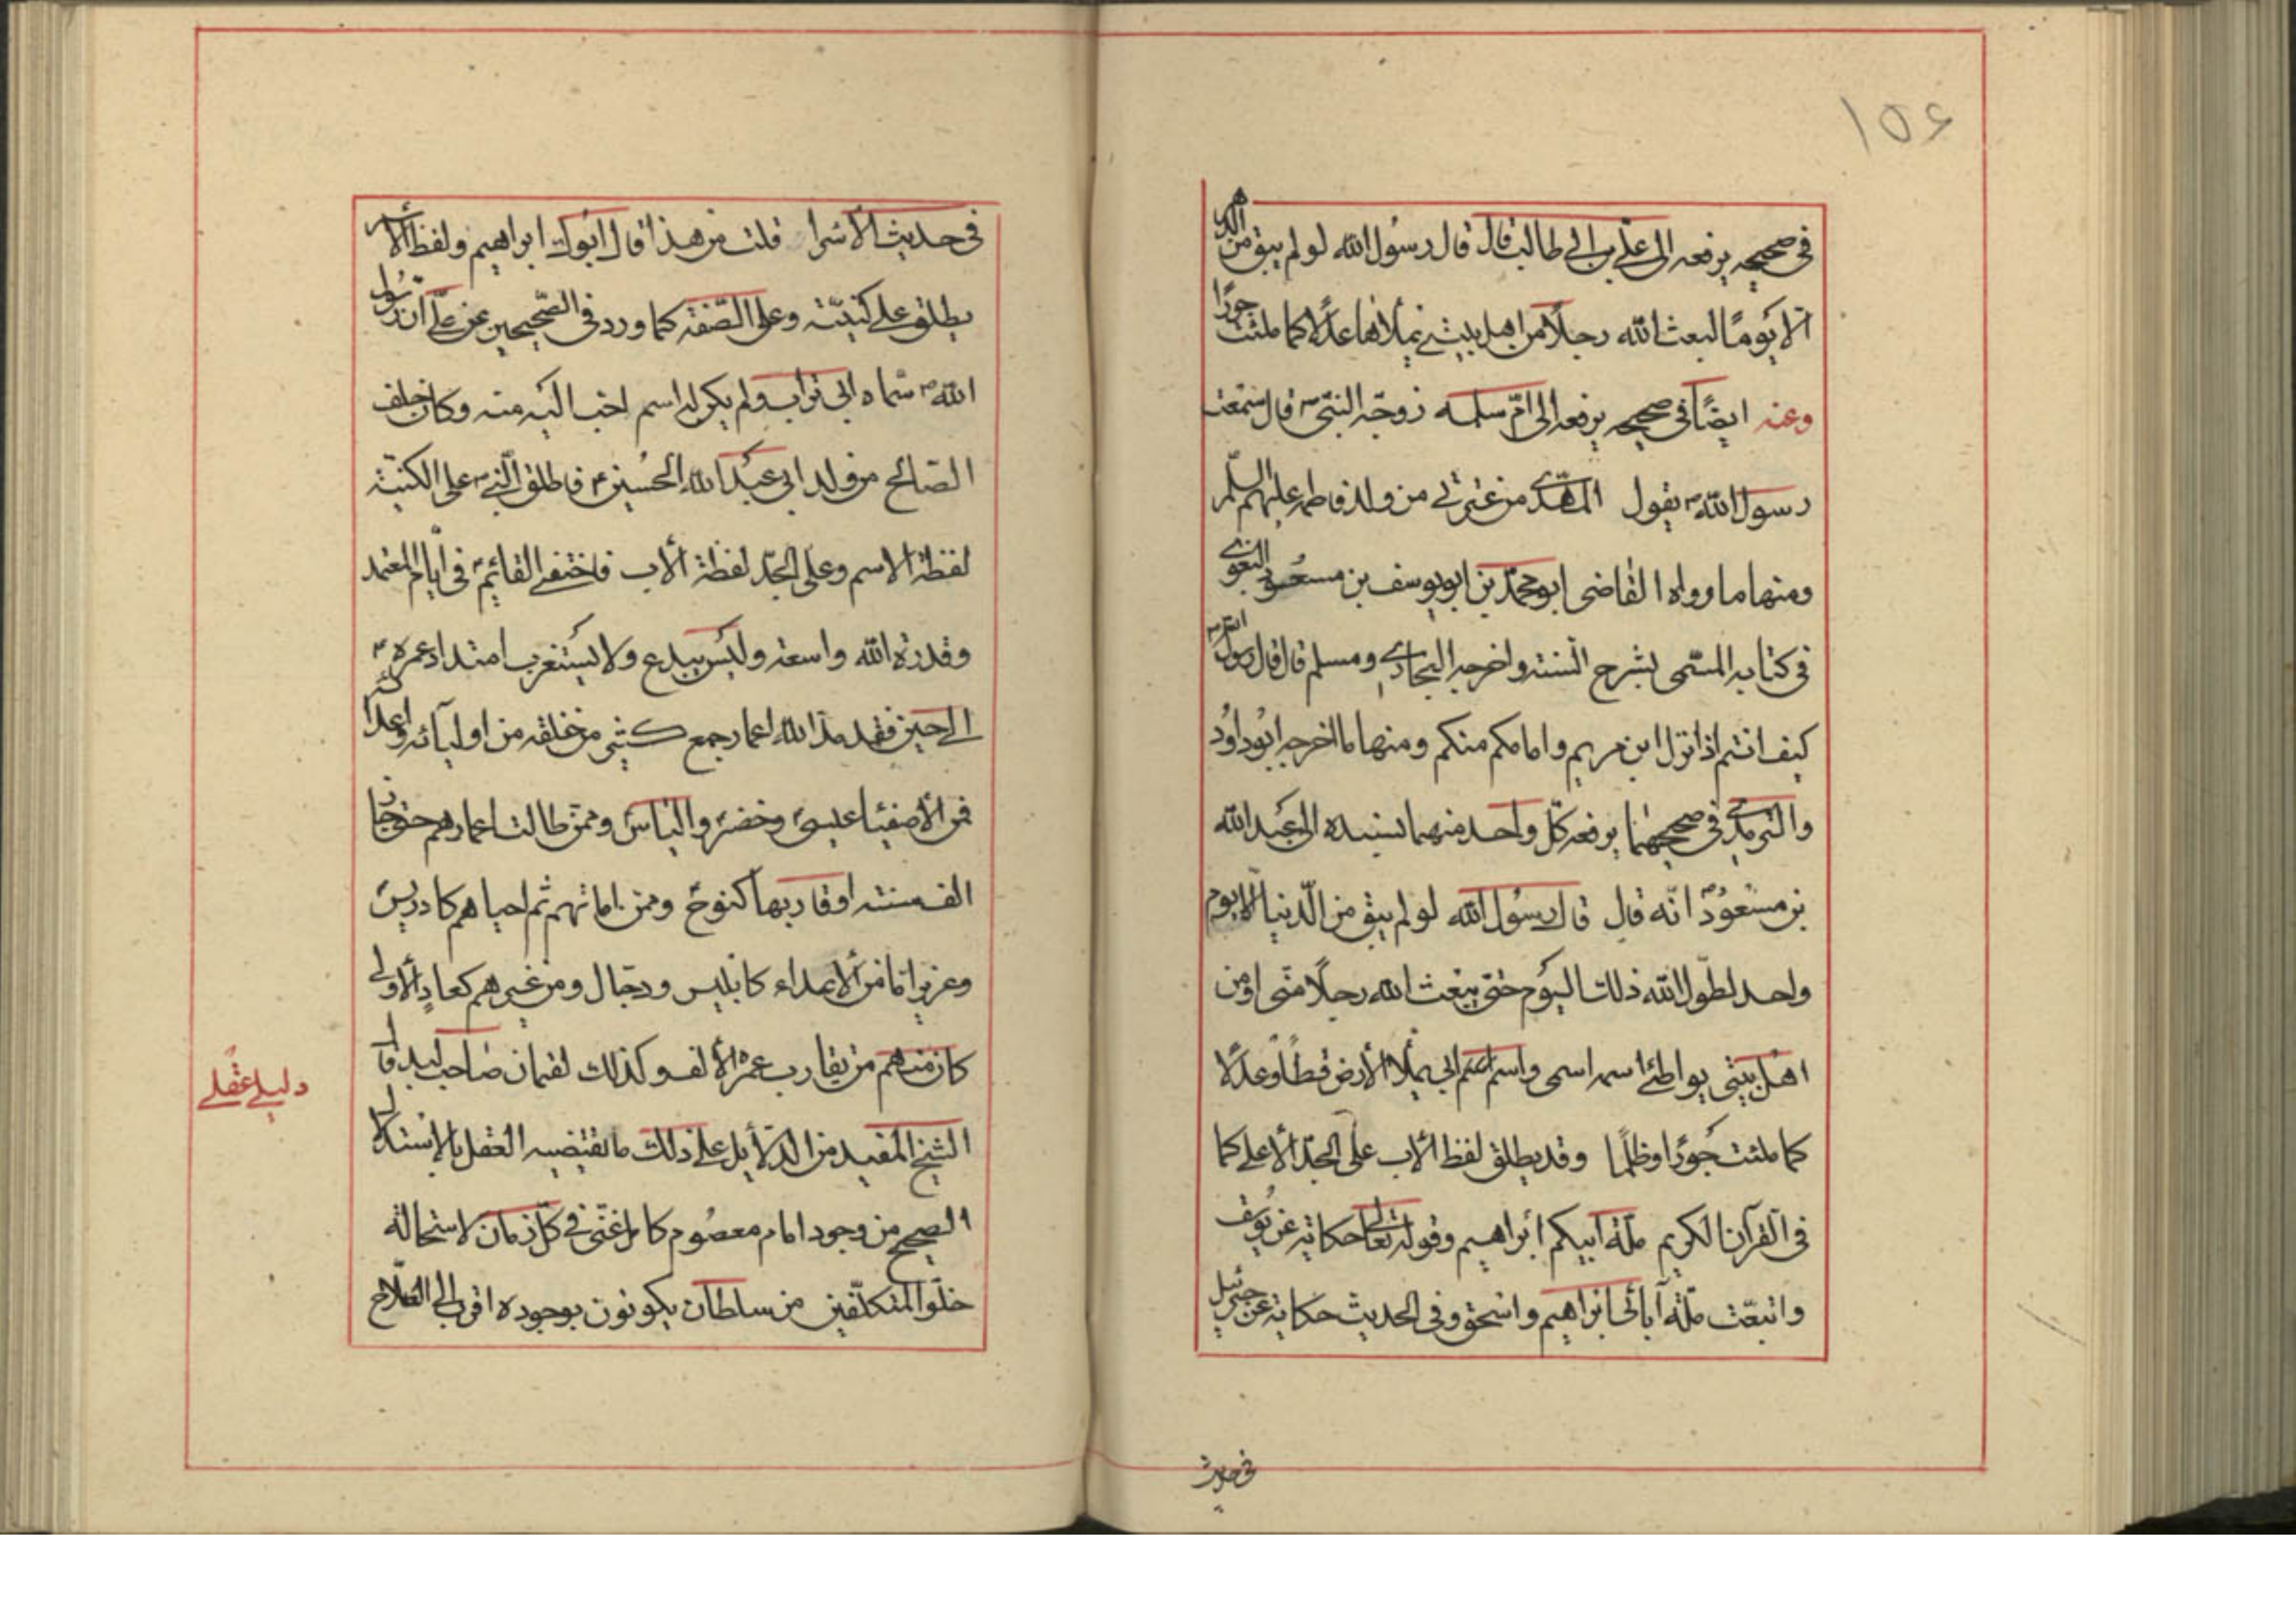 ١٥٤
في صحيحه يرفعه الى علي بن ابي طالب قال قال رسول الله لو لم يبق من الدهر
الا يومًا لبعث الله رجلًا من اهل بيتي يملأها عدلًا كما ملئت جورًا
وعنه ايضًا في صحيحه يرفعه الى امّ سلمه زوجة النبيّ ص قال سمعت
رسول الله ص يقول المهدي من عترتي من ولد فاطمه عليهم السلم
ومنها ما رواه القاضى ابو محمد بن ابو يوسف بن مسعود البغوي
في كتابه المسمّى بشرح السنته واخرجه البخاري ومسلم قال قال رسول الله ص
كيف انتم اذا نزل ابن مريم وامامكم منكم ومنها ما اخرجه ابو داود
والترمذي في صحيحهما يرفعه كلّ واحد منهما بسنده الى عبد الله
بن مسعود انّه قال قال رسول الله لو لم يبق من الدّنيا الّا يوم
واحد لطوّل الله ذلك اليوم حتى يبعث الله رجلًا منّي او من
اهل بيتي يواطئ اسمه اسمى واسم ابي يملأ الأرض قسطًا وعدلًا
كما ملئت جورًا وظلمًا وقد يطلق لفظ الأب على الجدّ الأعلى كما
في القرآن الكريم ملّة ابيكم ابراهيم وقوله تعالى حكاية عن يوسف
واتبعت ملّة آبائى ابراهيم واسحق وفي الحديث حكاية عن جبرئيل
في حديث
في حديث الأسرا قلت من هذا قال ابوك ابراهيم ولفظ الأسم
يطلق على كنيّته وعلى الصّفة كما ورد في الصّحيحين عن علّي انّ رسول
الله ص سمّاه ابي تراب ولم يكن له اسم احب اليه منه وكان خلف
الصّالح من ولد ابي عبد الله الحسين فاطلق النبي على الكنيّة
لفظة الاسم وعلى الجدّ لفظة الأب فاختفى القائم في ايّام المعتمد
وقدرة الله واسعة وليس ببدع ولا يستغرب امتداد عمره
الى حين فقد مدّ الله اعمار جمع كثير من خلقه من اوليائه واعدائه
فمن الأصفيا عيسى وخضر والياس وممّن طالت اعمارهم حتى جاز
الف سنته او قاربها كنوح وممن اماتهم ثم احياهم كادريس
وعزير امّا من الأعداء كابليس ودجّال ومن غيرهم كعاد الأولى
كان منهم من يقارب عمره الألف وكذلك لقمان صاحب لبد قال
الشيخ المفيد من الدّلايل على ذلك ما يقتضيه العقل بالإستدلال
الصحيح من وجود امام معصوم كامل غنّي في كلّ زمان لاستحالة
خلوّ المتكلّفين من سلطان يكونون بوجوده اقرب الى الصّلاح
دليل عقلي